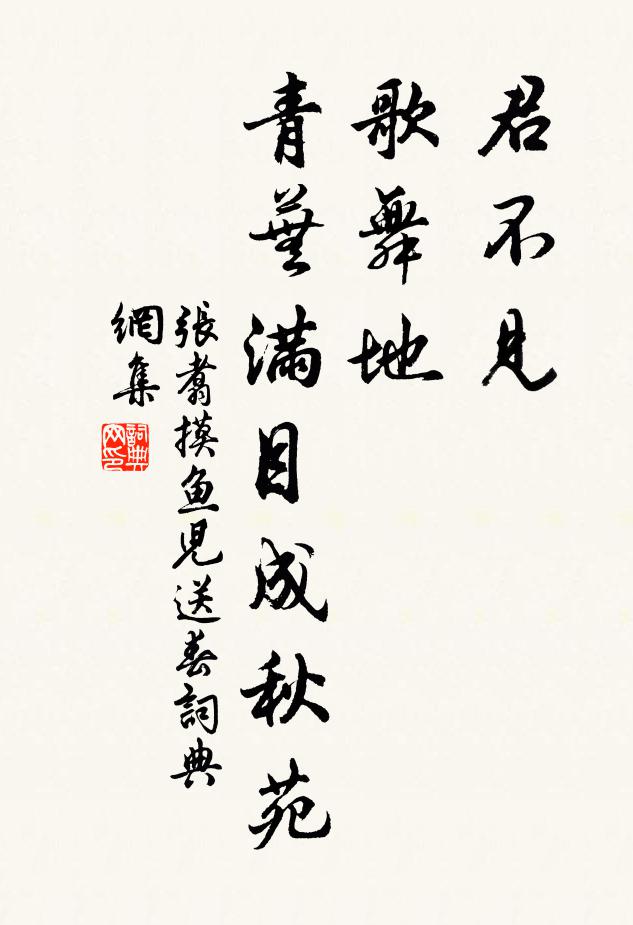 君不見
歌舞地
青蕪滿目成秋苑
張翥摸魚児送春詞典
網集
詞典
网印